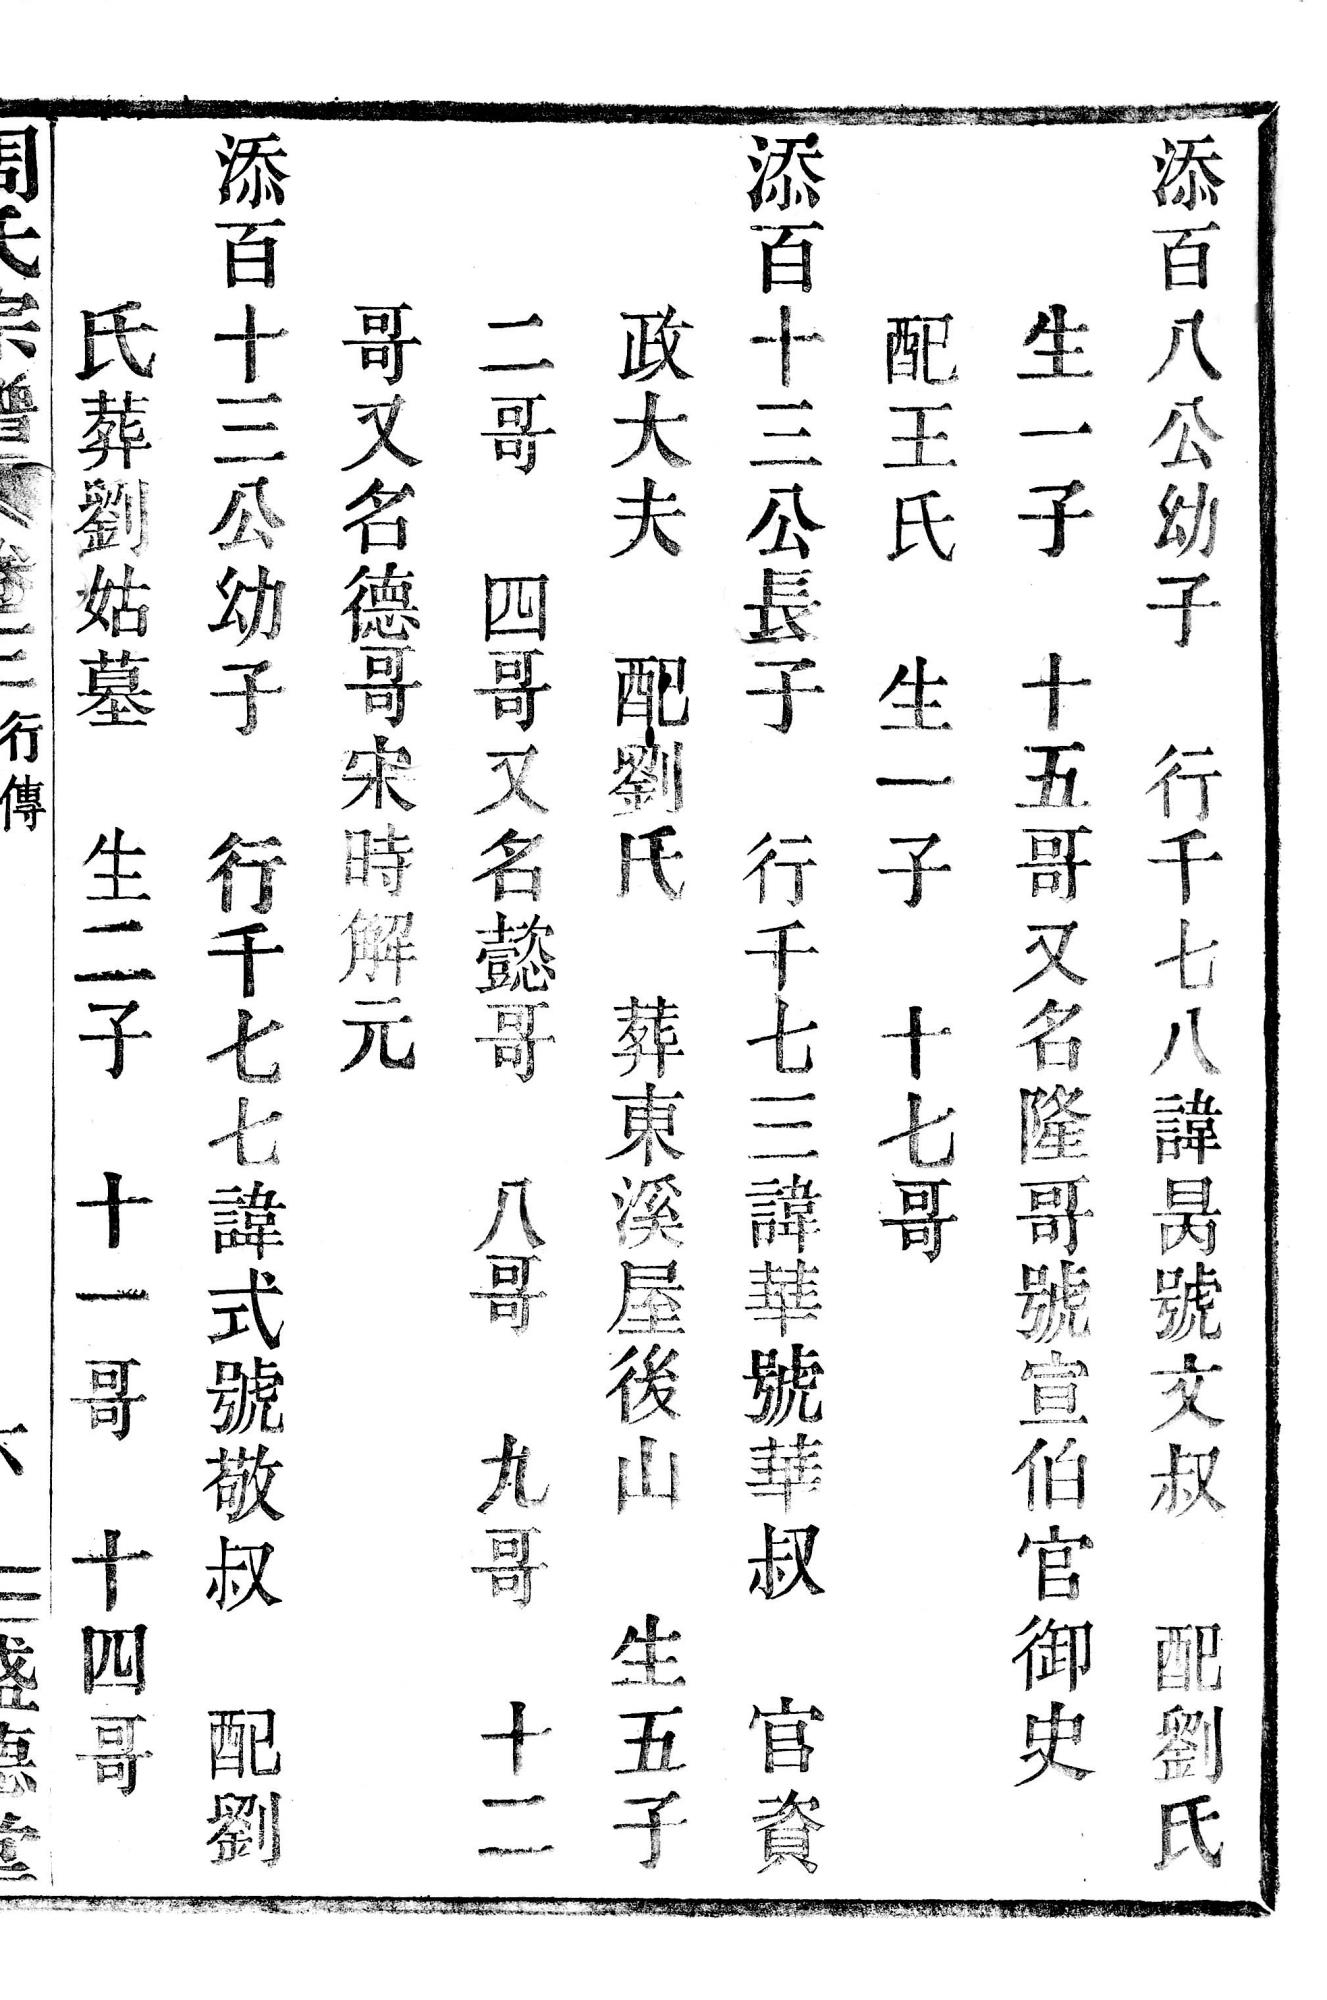 添百八公幼子　行千七八諱昺號文叔　配劉氏
生一子　十五哥又名隆哥號宣伯官御史
配王氏　生一子　十七哥
添百十三公長子　行千七三諱華號華叔　官資
政大夫　配劉氏　葬東溪屋後山　生五子
二哥　四哥又名懿哥　八哥　九哥　十二
哥又名德哥宋時解元
添百十三公幼子　行千七七諱式號敬叔　配劉
氏葬劉姑墓　生二子　十一哥　十四哥
周氏宗譜　卷二　行傳　六　三盛德堂